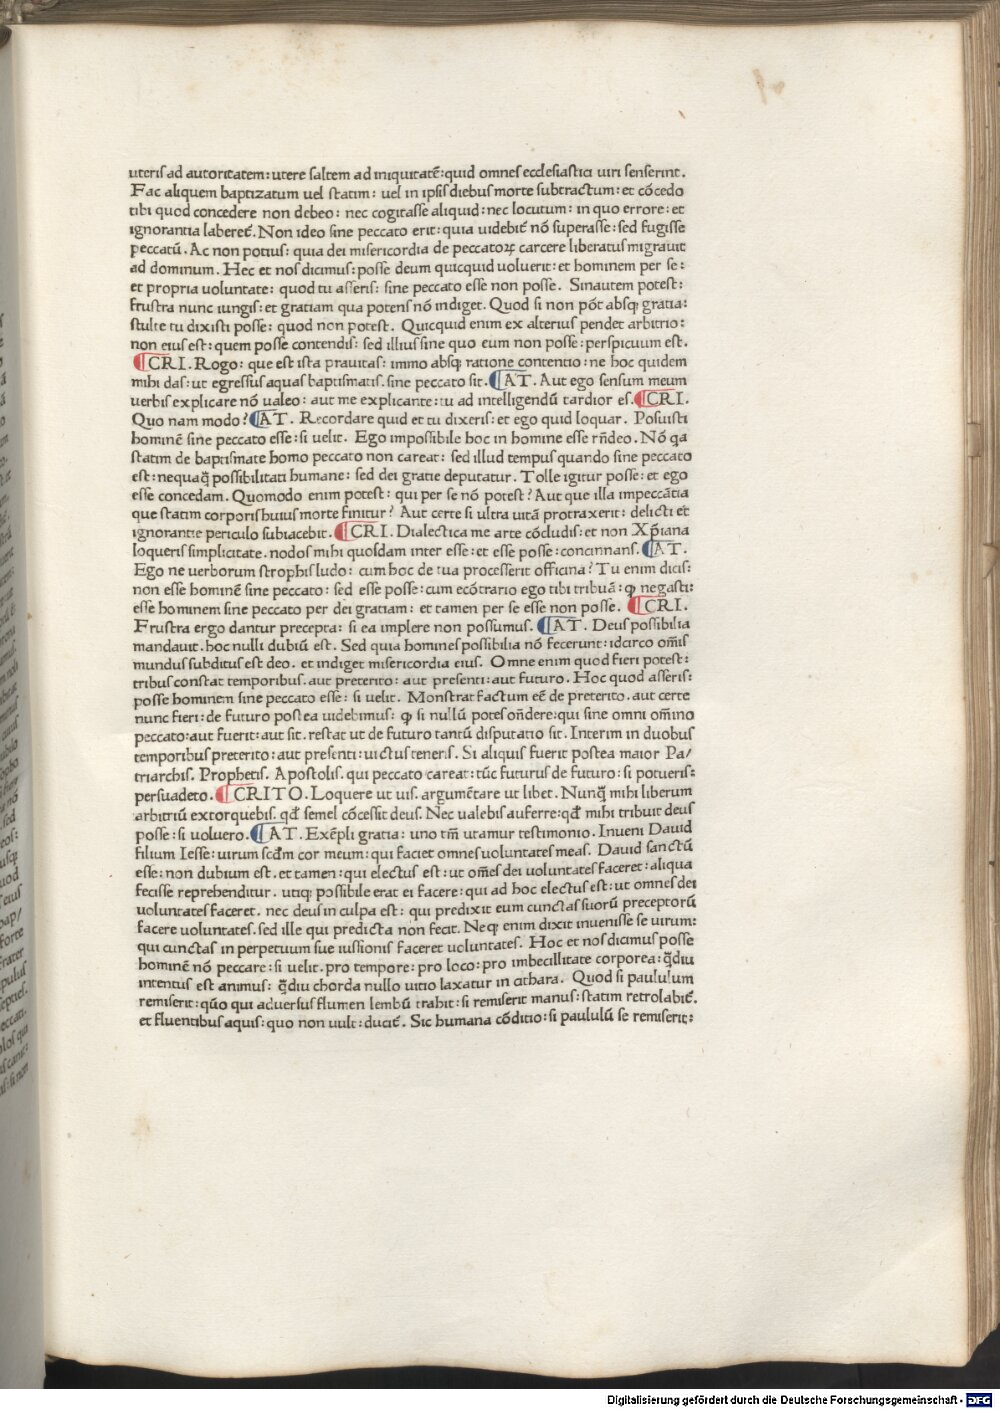 uteris ad autoritatem: utere saltem ad iniquitatē: quid omnes ecclesiastici uiri senserint.
Fac aliquem baptizatum uel statim: uel in ipsis diebus morte subtractum: et cōcedo
tibi quod concedere non debeo: nec cogitasse aliquid: nec locutum: in quo errore: et
ignorantia laberet᷑. Non ideo sine peccato erit: quia uidebit᷑ nō superasse: sed fugisse
peccatū. Ac non potius: quia dei misericordia de peccatoꝝ carcere liberatus migrauit
ad dominum. Hec et nos dicimus: posse deum quicquid uoluerit: et hominem per se:
et propria uoluntate: quod tu asseris: sine peccato esse non posse. Sinautem potest:
frustra nunc iungis: et gratiam qua potens nō indiget. Quod si non pōt absqꝫ gratia:
stulte tu dixisti posse: quod non potest. Quicquid enim ex alterius pendet arbitrio:
non eius est: quem posse contendis: sed illius sine quo eum non posse: perspicuum est.
¶CRI. Rogo: que est ista prauitas: immo absqꝫ ratione contentio: ne hoc quidem
mihi das: ut egressus aquas baptismatis. sine peccato sit. ¶AT. Aut ego sensum meum
uerbis explicare nō ualeo: aut me explicante: tu ad intelligendū tardior es. ¶CRI.
Quo nam modo? ¶AT. Recordare quid et tu dixeris: et ego quid loquar. Posuisti
hominē sine peccato esse: si uelit. Ego impossibile hoc in homine esse rn̄deo. Nō qa
statim de baptismate homo peccato non careat: sed illud tempus quando sine peccato
est: nequaq̄ possibilitati humane: sed dei gratie deputatur. Tolle igitur posse: et ego
esse concedam. Quomodo enim potest: qui per se nō potest? Aut que illa impeccātia
que statim corporis huius morte finitur? Aut certe si ultra uitā protraxerit: delicti et
ignorantie periculo subiacebit. ¶CRI. Dialectica me arte cōcludis: et non Xp̄iana
loqueris simplicitate. nodos mihi quosdam inter esse: et esse posse: concinnans. ¶AT.
Ego ne uerborum strophis ludo: cum hoc de tua processerit officina? Tu enim dicis:
non esse hominē sine peccato: sed esse posse: cum ecōtrario ego tibi tribuā: ꝙ negasti:
esse hominem sine peccato per dei gratiam: et tamen per se esse non posse. ¶CRI.
Frustra ergo dantur precepta: si ea implere non possumus. ¶AT. Deus possibilia
mandauit. hoc nulli dubiū est. Sed quia homines possibilia nō fecerunt: idcirco om̄is
mundus subditus est deo. et indiget misericordia eius. Omne enim quod fieri potest:
tribus constat temporibus. aut preterito: aut presenti: aut futuro. Hoc quod asseris:
posse hominem sine peccato esse: si uelit. Monstrat factum eē de preterito. aut certe
nunc fieri: de futuro postea uidebimus: ꝙ si nullū potes on̄dere: qui sine omni om̄ino
peccato: aut fuerit: aut sit. restat ut de futuro tantū disputatio sit. Interim in duobus
temporibus preterito: aut presenti: uictus teneris. Si aliquis fuerit postea maior Pa/
triarchis. Prophetis. Apostolis. qui peccato careat: tūc futurus de futuro: si potueris:
persuadeto. ¶CRITO. Loquere ut uis. argumētare ut libet. Nunq̄ mihi liberum
arbitriū extorquebis. qđ semel cōcessit deus. Nec ualebis auferre: qđ mihi tribuit deus
posse: si uoluero. ¶AT. Exēpli gratia: uno tm̄ utamur testimonio. Inueni Dauid
filium Iesse: uirum scđm cor meum: qui faciet omnes uoluntates meas. Dauid sanctū
esse: non dubium est. et tamen: qui electus est: ut om̄es dei uoluntates faceret: aliqua
fecisse reprehenditur. utiqꝫ possibile erat ei facere: qui ad hoc electus est: ut omnes dei
uoluntates faceret. nec deus in culpa est: qui predixit eum cunctas suorū preceptorū
facere uoluntates. sed ille qui predicta non fecit. Neqꝫ enim dixit inuenisse se uirum:
qui cunctas in perpetuum sue iussionis faceret uoluntates. Hoc et nos dicimus posse
hominē nō peccare: si uelit. pro tempore: pro loco: pro imbecillitate corporea: q̄diu
intentus est animus: q̄diu chorda nullo uitio laxatur in cithara. Quod si paululum
remiserit: qūo qui aduersus flumen lembū trahit: si remiserit manus: statim retrolabit᷑.
et fluentibus aquis: quo non uult: ducit᷑. Sic humana cōditio: si paululū se remiserit:
Digitalisierung gefördert durch die Deutsche Forschungsgemeinschaft - DFG